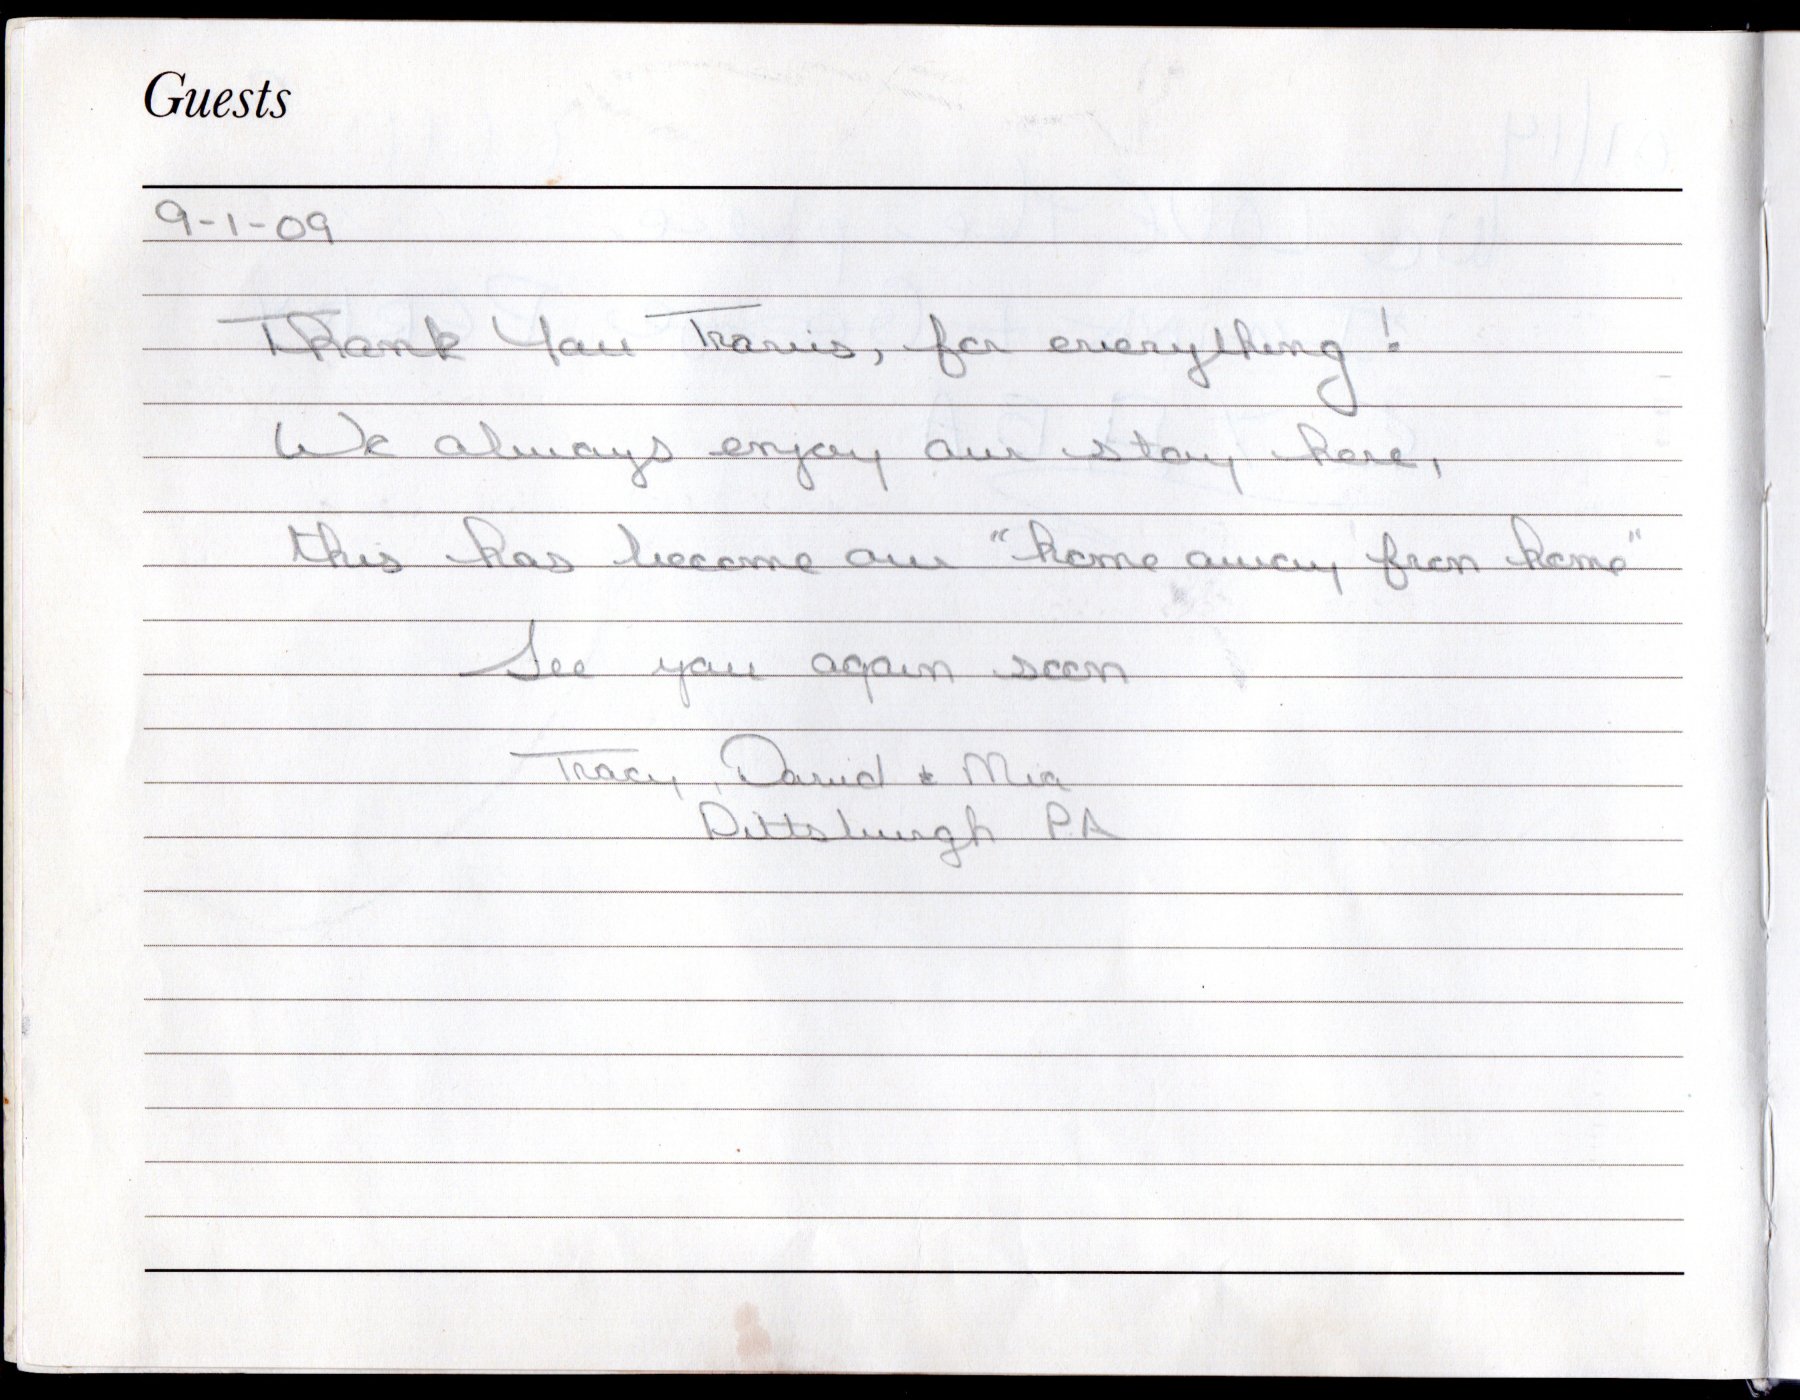 Guests
9-1-09
Thank You Travis, for everything!
We always enjoy our stay here,
this has become our "home away from home"
See you again soon
Tracy, David & Mia
Pittsburgh PA